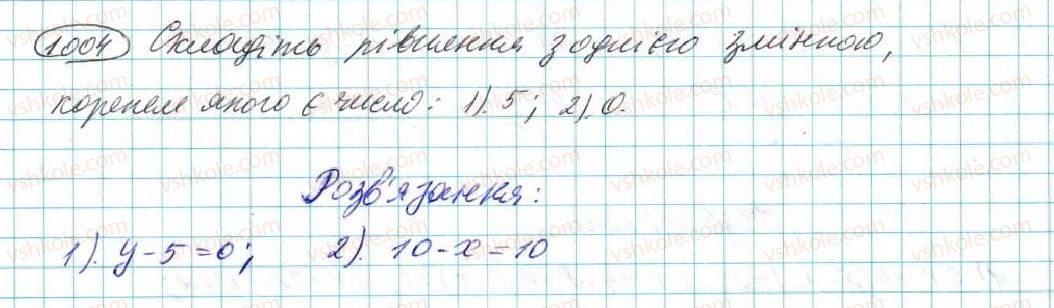 1004 Складіть рівняння з однією змінною,
коренем якого є число: 1). 5; 2). 0.
Розв'язання:
1). y - 5 = 0; 2). 10 - x = 10